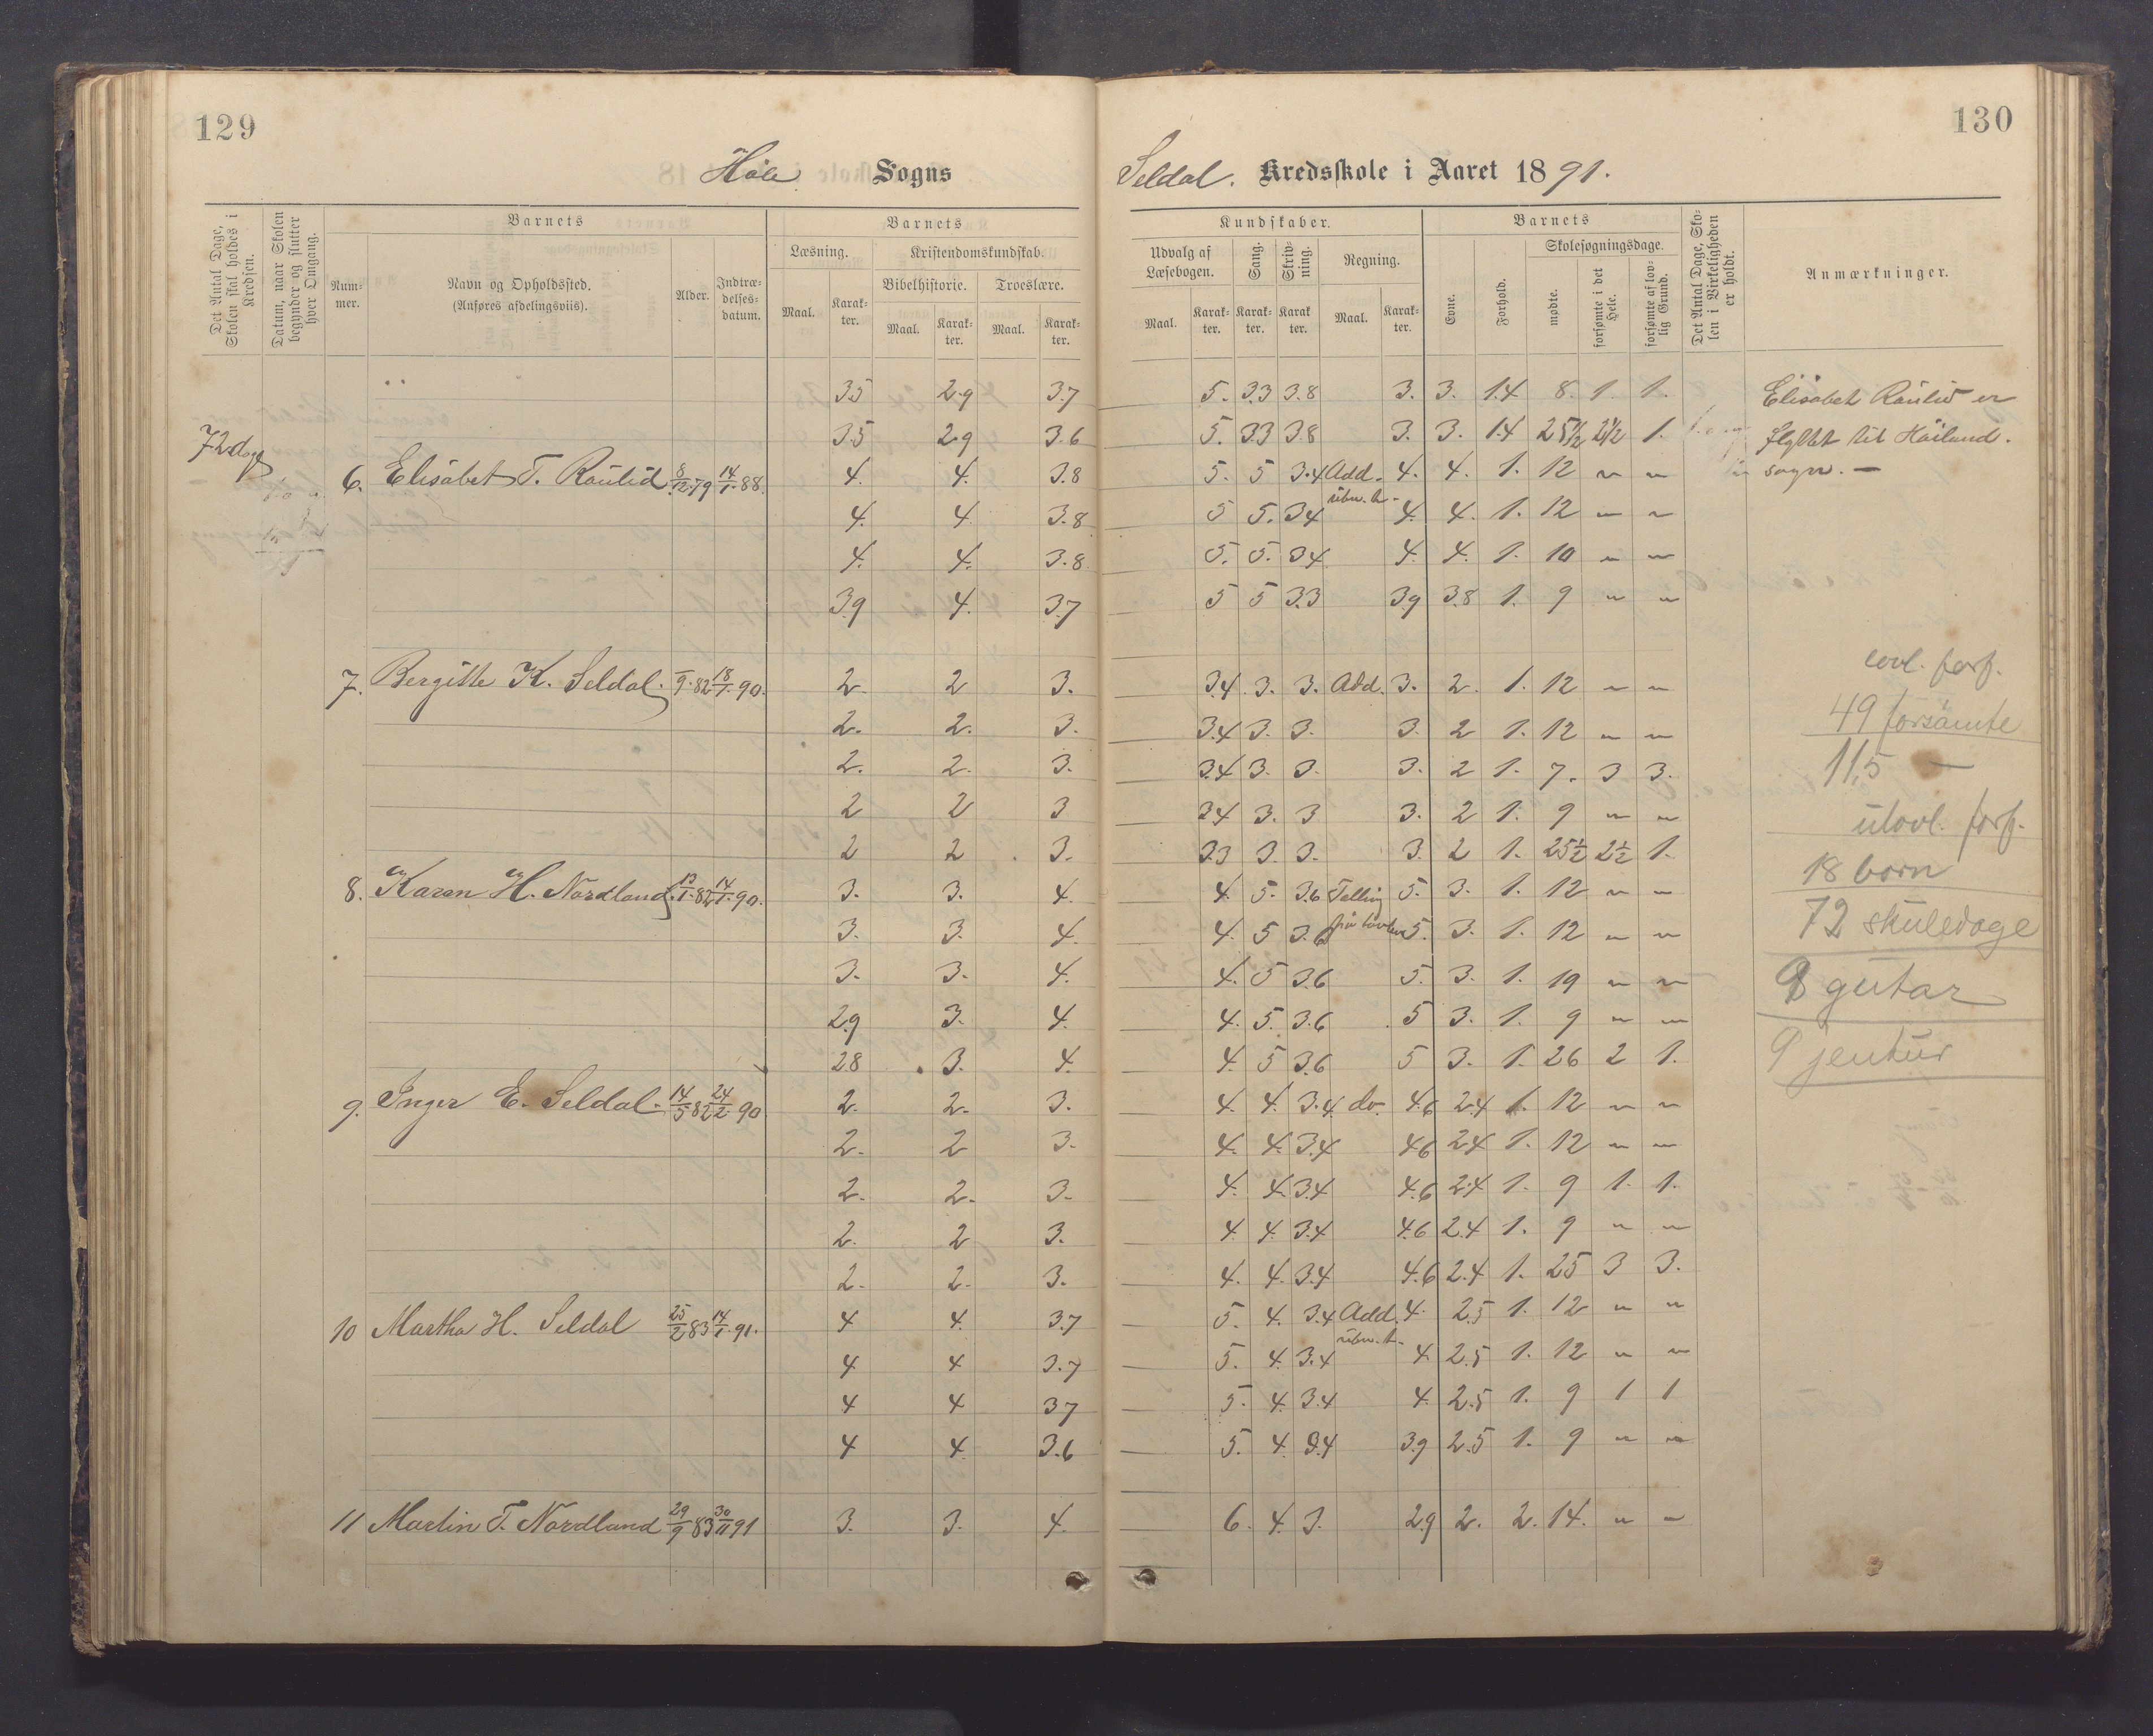 129
130
Høle Sogns
Seldal. Kredsskole i Aaret 1891.
Det Antal Dage, Skolen skal holdes i Kredsen.
Datum, naar Skolen begynder og slutter hver Omgang.
Barnets
Num-mer.
Navn og Opholdssted.
(Anføres afdelingsviis).
Alder.
Indtræ-delses-datum.
Barnets
Læsning.
Maal.
Karak-ter.
Kristendomskundskab.
Bibelhistorie.
Maal.
Karak-ter.
Troeslære.
Maal.
Karak-ter.
Kundskaber.
Udvalg af Læsebogen.
Maal.
Karak-ter.
Sang.
Karak-ter.
Skriv-ning.
Karak-ter.
Regning.
Maal.
Karak-ter.
Barnets
Evne.
Forhold.
Skolesøgningsdage.
mødte.
forsømte i det Hele.
forsømte af lov-lig Grund.
Det Antal Dage, Sko-len i Virkeligheden er holdt.
Anmærkninger.
3.5 2.9 3.7 5. 3.3 3.8 3. 3. 1.4 8. 1. 1. Elisabet Raulid er
72 dag 3.5 2.9 3.6 5. 3.3 3.8 3. 3. 1.4 25 1/2 2 1/2 1. flyttet til Høiland.
6. Elisabet T. Raulid 8/12.79 14/1.88. 4. 4. 3.8 5. 5 3.4 Add. 4. 4. 1. 12 " " sogn. —
4. 4. 3.8 5 5. 3.4 4. 4. 1. 12 " "
4. 4. 3.8 5. 5. 3.4 4. 4. 1. 10 " "
3.9 4. 3.7 5 5 3.3 3.9 3.8 1. 9 " "
lovl. forf.
7. Bergitte K. Seldal. /9.82 18/1.90. 2. 2 3. 3.4 3. 3. Add. 3. 2. 1. 12 " "
2. 2. 3. 3.4 3. 3. 3. 2 1. 12 " " 49 forsömte
2. 2. 3. 3.4 3. 3. 3. 2 1. 7. 3 3. 11,5 —
2 2 3 3.4 3. 3 3. 2 1. 9 " " ulovl. forf.
2 2 3. 3.3 3. 3. 3. 2 1. 25 1/2 2 1/2 1.
8. Karen H. Nordland. 13/1.82 14/1.90. 3. 3. 4. 4. 5. 3.6 Telling 5. 3. 1. 12 " " 18 born
3. 3. 4. 4. 5 3.6 på tavlen 5. 3. 1. 12 " " 72 skuledage
3. 3. 4. 4. 5 3.6 5. 3. 1. 19 " " 9 gutar
2.9 3. 4. 4. 5. 3.6 5 3. 1. 9 " "
2.8 3. 4. 4. 5 3.6 5 3. 1. 26 2 1. 9 jentur
9. Inger E. Seldal. 14/5 82 24/2.90 2. 2. 3. 4. 4. 3.4 do. 4.6 2.4 1. 12 " "
2. 2 3. 4. 4. 3.4 4.6 2.4 1. 12 " "
2. 2. 3. 4. 4. 3.4 4.6 2.4 1. 9 1. 1.
2. 2 3. 4. 4. 3.4 4.6 2.4 1. 9 " "
2. 2. 3. 4. 4. 3.4 4.6 2.4 1. 25 3 3.
10 Martha H. Seldal 25/2 83 14/1.91. 4 4. 3.7 5. 4. 3.4 Add. 4. 2.5 1. 12 " "
4 4 3.7 5. 4. 3.4 4. 2.5 1. 12 " "
4 4 3.7 5. 4. 3.4 4. 2.5 1. 9 1 1
4 4. 3.6 5. 4. 3.4 3.9 2.5 1. 9 " "
11 Martin T. Nordland 29/9 83 30/11 91 3. 3. 4. 6. 4. 3. 2.9 2. 2. 14. " "